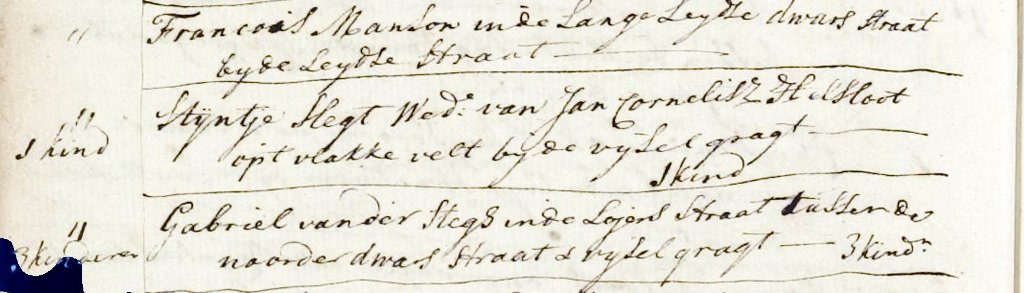 " Francois Manson inde Lange Leydse dwars Straat
byde Leydse Straat
" Styntje Slegt Wed:e van Jan Cornelisz Helsloot
1 kind opt vlakke velt byde vysel gragt
1 kind
" Gabriel vander Stegh inde Lojers Straat tussende
3 kinderen noorder dwars Straat & vysel gragt — 3 kind:n